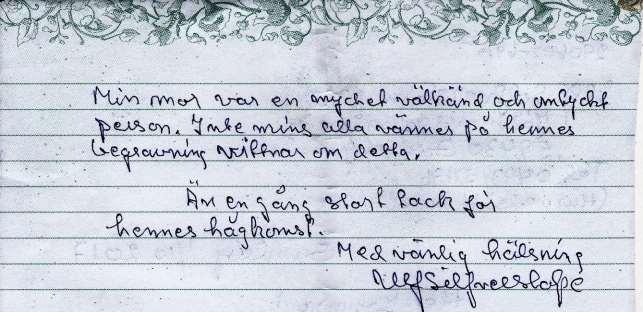 Min mor var en mycket välkänd och omtyckt
person. Inte mins alla vänner på hennes
begravning vittnar om detta.
Än en gång stort tack för
hennes hågkomst.
Med vänlig hälsning
Ulf Silfverstolpe